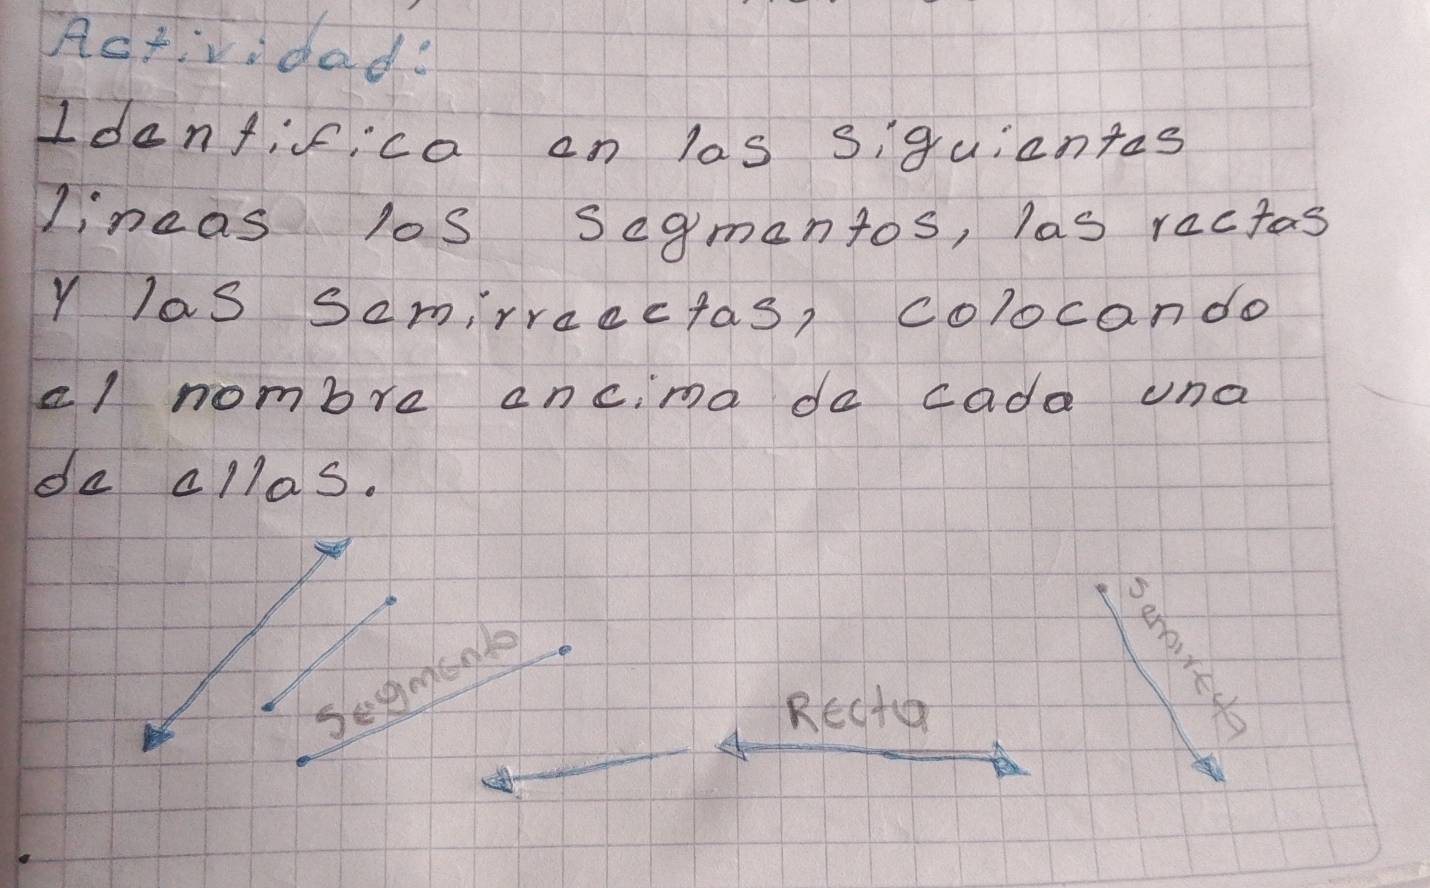 Actividad:
Identifica en las siguientes
líneas los segmentos, las rectas
y las semirreectas, colocando
el nombre encima de cada una
de ellas.
Segmento
Recta
semirecta